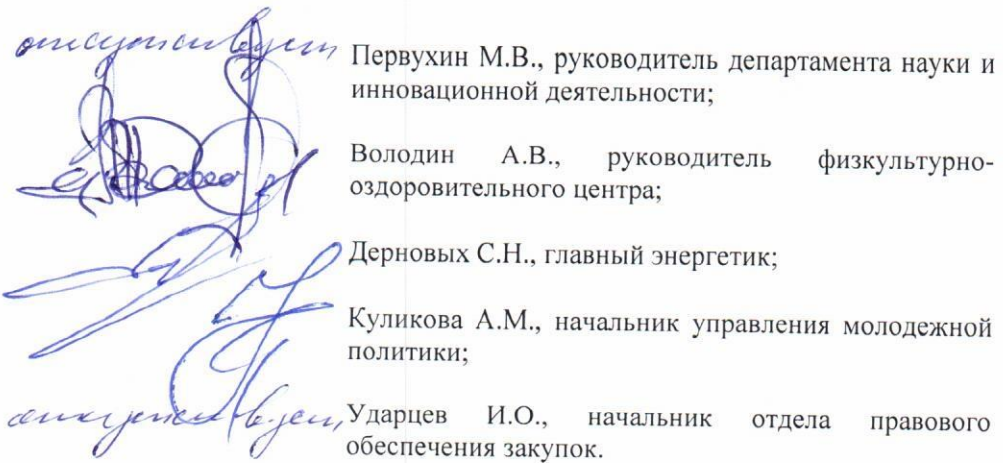 отсутствует
Первухин М.В., руководитель департамента науки и
инновационной деятельности;
Володин А.В., руководитель физкультурно-
оздоровительного центра;
Дерновых С.Н., главный энергетик;
Куликова А.М., начальник управления молодежной
политики;
отсутствует
Ударцев И.О., начальник отдела правового
обеспечения закупок.